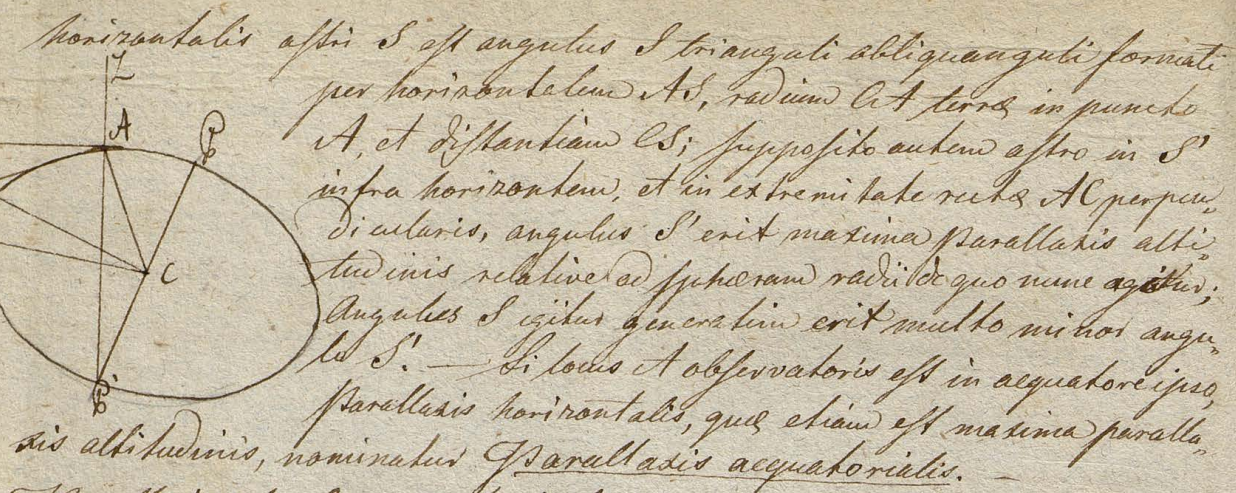 horizontalis astri S est angulus S trianguli obliquanguli formati
Z
per horizontalem AS, radium CA terræ in puncto
A
P
A, et distantiam CS; supposito autem astro in S'
infra horizontem, et in extremitate rectæ AC perpen„
dicularis, angulus S' erit maxima Parallaxis alti„
C
tudinis relative ad sphæram radii de quo nunc agitur;
Angulus S igitur generatim erit multo minor angu„
lo S'. — Si locus A observatoris est in aequatore ipso,
P'
Parallaxis horizontalis, quæ etiam est maxima paralla„
xis altitudinis, nominatur Parallaxis aequatorialis. —